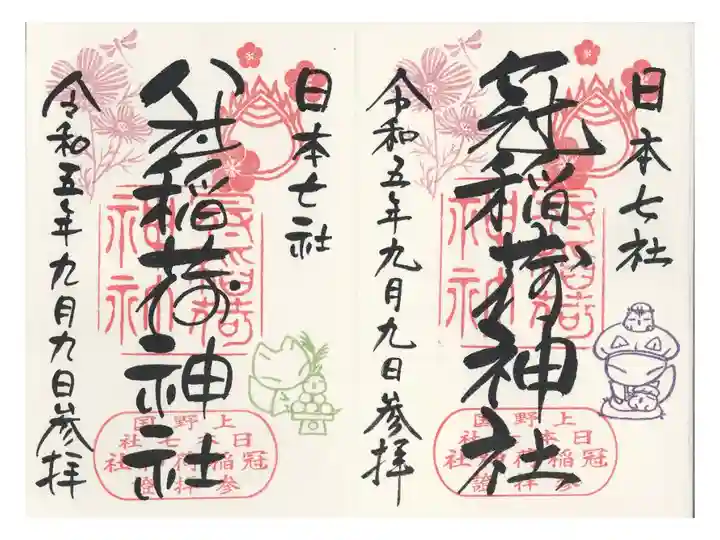 日本七社
冠稲荷神社
令和五年九月九日参拝
上野国
日本七社
冠稲荷神社
参拝證
日本七社
冠稲荷神社
令和五年九月九日参拝
上野国
日本七社
冠稲荷神社
参拝證